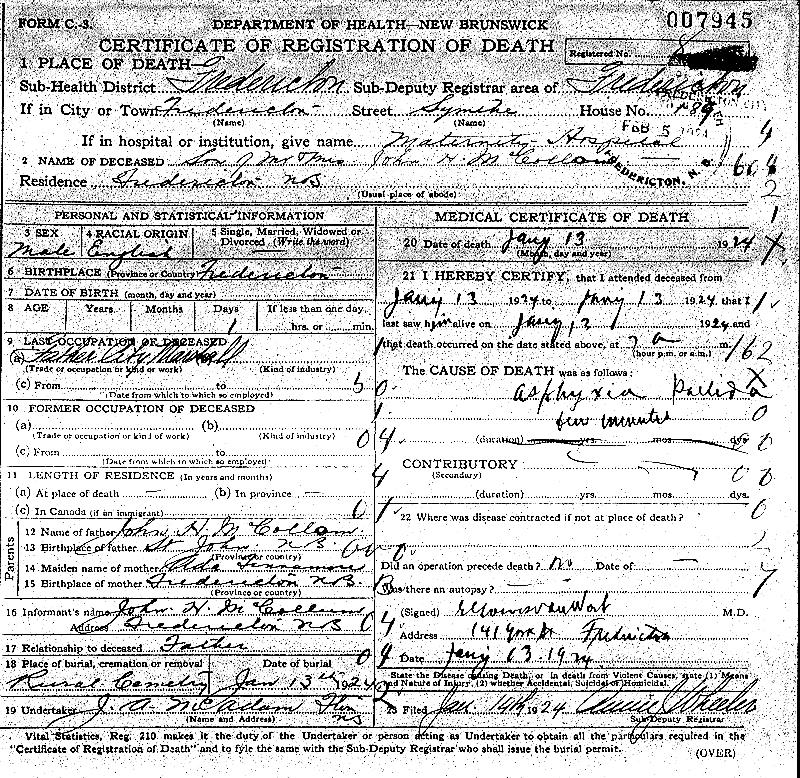 FORM C.-3. DEPARTMENT OF HEALTH—NEW BRUNSWICK 007945
CERTIFICATE OF REGISTRATION OF DEATH
Registered No.
1 PLACE OF DEATH—
Sub-Health District Fredericton Sub-Deputy Registrar area of Fredericton
If in City or Town Fredericton Street Smythe House No.
(Name) (Name)
FEB 5 1924
If in hospital or institution, give name Maternity Hospital
2 NAME OF DECEASED Son of Mr & Mrs John H McCollom
FREDERICTON, N. B.
Residence Fredericton NB
(Usual place of abode)
PERSONAL AND STATISTICAL INFORMATION
3 SEX 4 RACIAL ORIGIN 5 Single, Married, Widowed or Divorced (Write the word)
Male English
6 BIRTHPLACE (Province or Country) Fredericton
7 DATE OF BIRTH (month, day and year)
8 AGE Years Months Days If less than one day
1 hrs. or min.
9 LAST OCCUPATION OF DECEASED
(a) Father City Marshall
(Trade or occupation or kind or work) (Kind of industry)
(c) From to
(Date from which to which so employed)
10 FORMER OCCUPATION OF DECEASED
(a) (b)
(Trade or occupation or kind of work) (Kind of industry)
(c) From to
(Date from which to which so employed)
11 LENGTH OF RESIDENCE (In years and months)
(a) At place of death — (b) In province —
(c) In Canada (if an immigrant)
Parents
12 Name of father John H McCollom
13 Birthplace of father St John NB
(Province or country)
14 Maiden name of mother Ada
15 Birthplace of mother Fredericton NB
(Province or country)
16 Informant's name John H McCollom
Address Fredericton NB
17 Relationship to deceased Father
18 Place of burial, cremation or removal Date of burial
Rural Cemetery Jan 13th 1924
19 Undertaker J. A. McAdam
(Name and Address)
MEDICAL CERTIFICATE OF DEATH
20 Date of death Jany 13 1924
(Month, day and year)
21 I HEREBY CERTIFY, that I attended deceased from
Jany 13 1924 to Jany 13 1924 that I
last saw him alive on Jany 13 1924 and
that death occurred on the date stated above, at 7 a m.
(hour p.m. or a.m.)
The CAUSE OF DEATH was as follows:
Asphyxia Pallida
few minutes
(duration) yrs. mos. dys
CONTRIBUTORY
(Secondary)
(duration) yrs. mos. dys.
22 Where was disease contracted if not at place of death?
Did an operation precede death? No Date of —
Was there an autopsy? —
(Signed) M.D.
Address 141 York St Fredericton
Date Jany 13 1924
State the Disease causing Death, or in death from Violent Causes, state (1) Means and Nature of Injury, (2) whether Accidental, Suicidal or Homicidal.
23 Filed Jan 14th 1924 Annie Wheeler
Sub-Deputy Registrar
Vital Statistics, Reg. 210 makes it the duty of the Undertaker or person acting as Undertaker to obtain all the particulars required in the
"Certificate of Registration of Death" and to fyle the same with the Sub-Deputy Registrar who shall issue the burial permit.
(OVER)